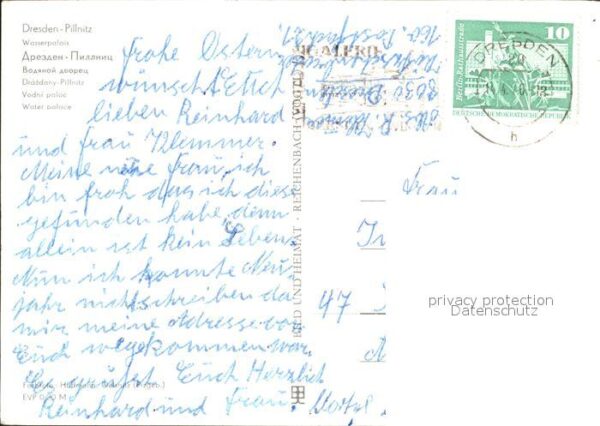 Dresden-Pillnitz
Wasserpalais
Дрезден-Пиллниц
Водяной дворец
Drážďany-Pillnitz
Vodní palác
Water palace
Frohe Ostern
wünscht Euch
lieben Reinhard
und Frau Klemmer.
Meine neue Frau, ich
bin froh das ich diese
gefunden habe, denn
allein ist kein Leben.
Nun ich konnte Neu-
jahr nicht schreiben da
mir meine Adresse von
Euch wegekommen war.
Es grüßt Euch Herzlich
Reinhard und Frau.
EVP 0,20 M
BILD UND HEIMAT · REICHENBACH (VOGTL)
GALERIE
8030 Dresden
DRESDEN
h
10
Berlin, Rathausstraße
DEUTSCHE DEMOKRATISCHE REPUBLIK
Frau
47
privacy protection
Datenschutz